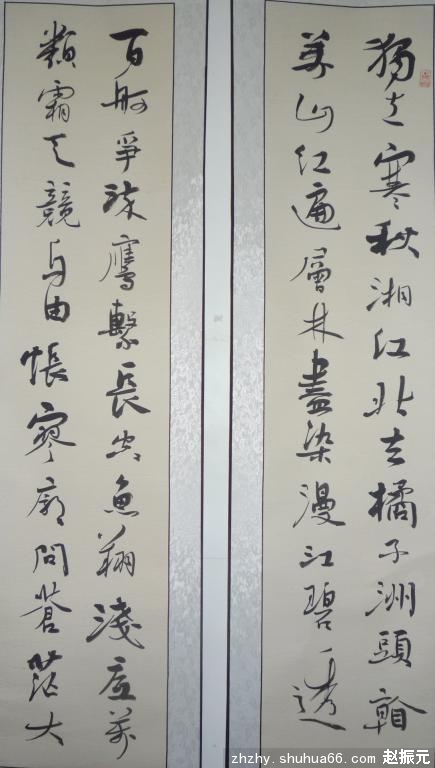 獨立寒秋湘江北去橘子洲頭看
萬山红遍層林盡染漫江碧透
百舸爭流鷹擊長空魚翔淺底萬
類霜天競自由悵寥廓問蒼茫大
zhzhy.shuhua66.com 赵振元